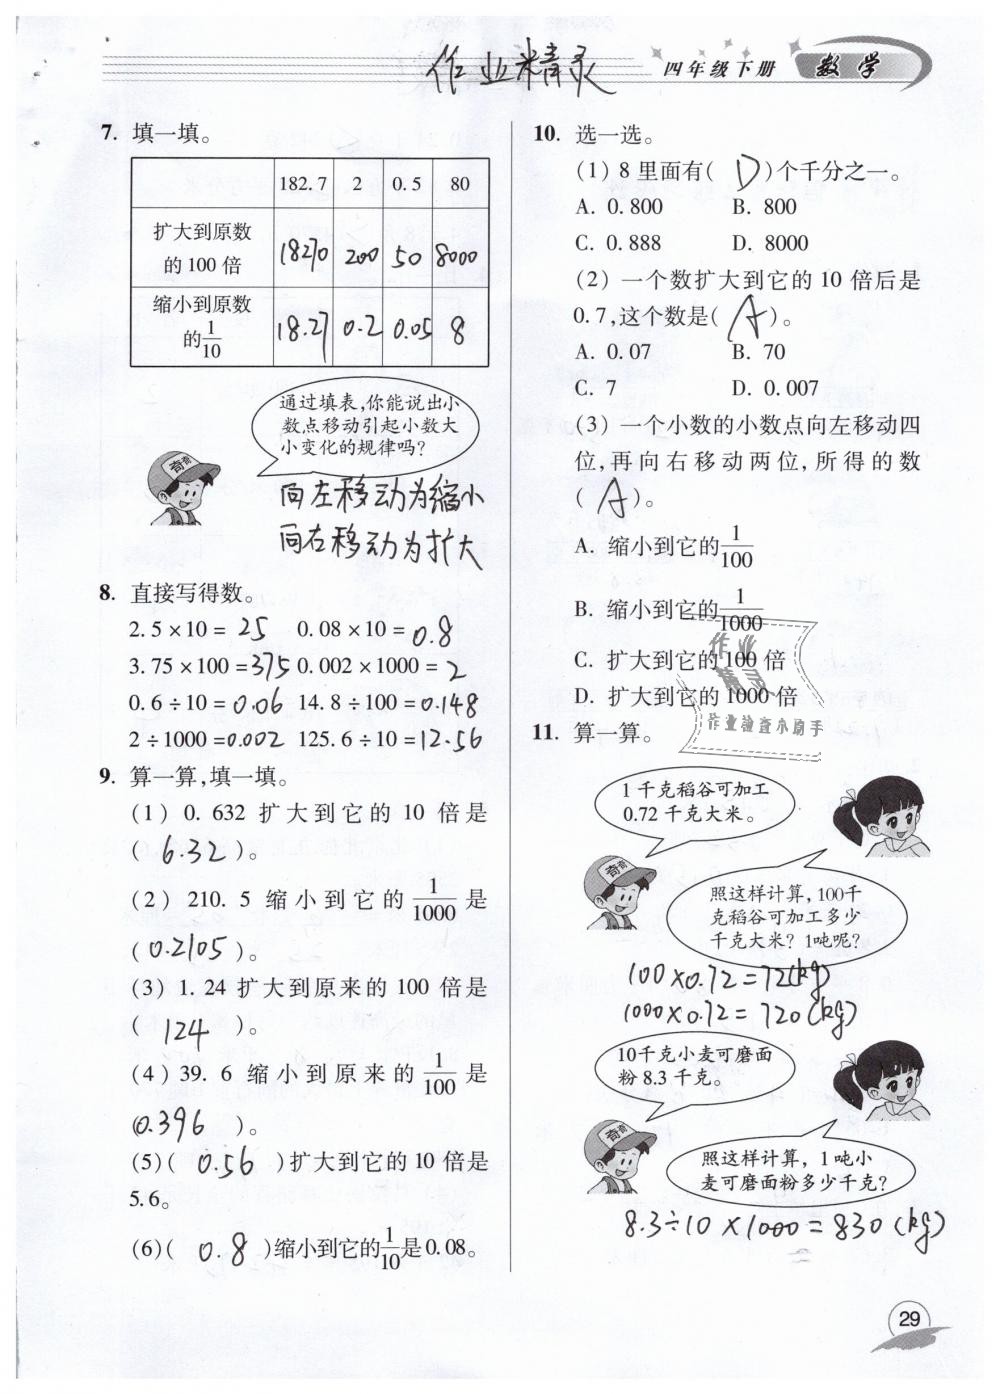 作业精灵
四年级下册 数学
7. 填一填。
182.7 2 0.5 80
扩大到原数的100倍 18270 200 50 8000
缩小到原数的1/10 18.27 0.2 0.05 8
通过填表,你能说出小
数点移动引起小数大
小变化的规律吗?
奇奇
向左移动为缩小
向右移动为扩大
8. 直接写得数。
2.5×10= 25 0.08×10= 0.8
3.75×100=375 0.002×1000= 2
0.6÷10=0.06 14.8÷100=0.148
2÷1000=0.002 125.6÷10=12.56
9. 算一算,填一填。
(1) 0.632 扩大到它的 10 倍是
( 6.32 )。
(2) 210.5 缩小到它的 1/1000 是
(0.2105)。
(3) 1.24 扩大到原来的 100 倍是
( 124 )。
(4) 39.6 缩小到原来的 1/100 是
(0.396 )。
(5)( 0.56 )扩大到它的 10 倍是
5.6。
(6)( 0.8 )缩小到它的1/10是0.08。
10. 选一选。
(1) 8 里面有( D )个千分之一。
A. 0.800 B. 800
C. 0.888 D. 8000
(2) 一个数扩大到它的 10 倍后是
0.7,这个数是( A )。
A. 0.07 B. 70
C. 7 D. 0.007
(3) 一个小数的小数点向左移动四
位,再向右移动两位,所得的数
( A )。
A. 缩小到它的1/100
B. 缩小到它的1/1000
C. 扩大到它的 100 倍
D. 扩大到它的 1000 倍
作业
精灵
作业检查小助手
11. 算一算。
1千克稻谷可加工
0.72千克大米。
奇奇
照这样计算,100千
克稻谷可加工多少
千克大米? 1吨呢?
100×0.72=72(kg)
1000×0.72=720(kg)
10千克小麦可磨面
粉8.3千克。
奇奇
照这样计算, 1吨小
麦可磨面粉多少千克?
8.3÷10×1000=830(kg)
29